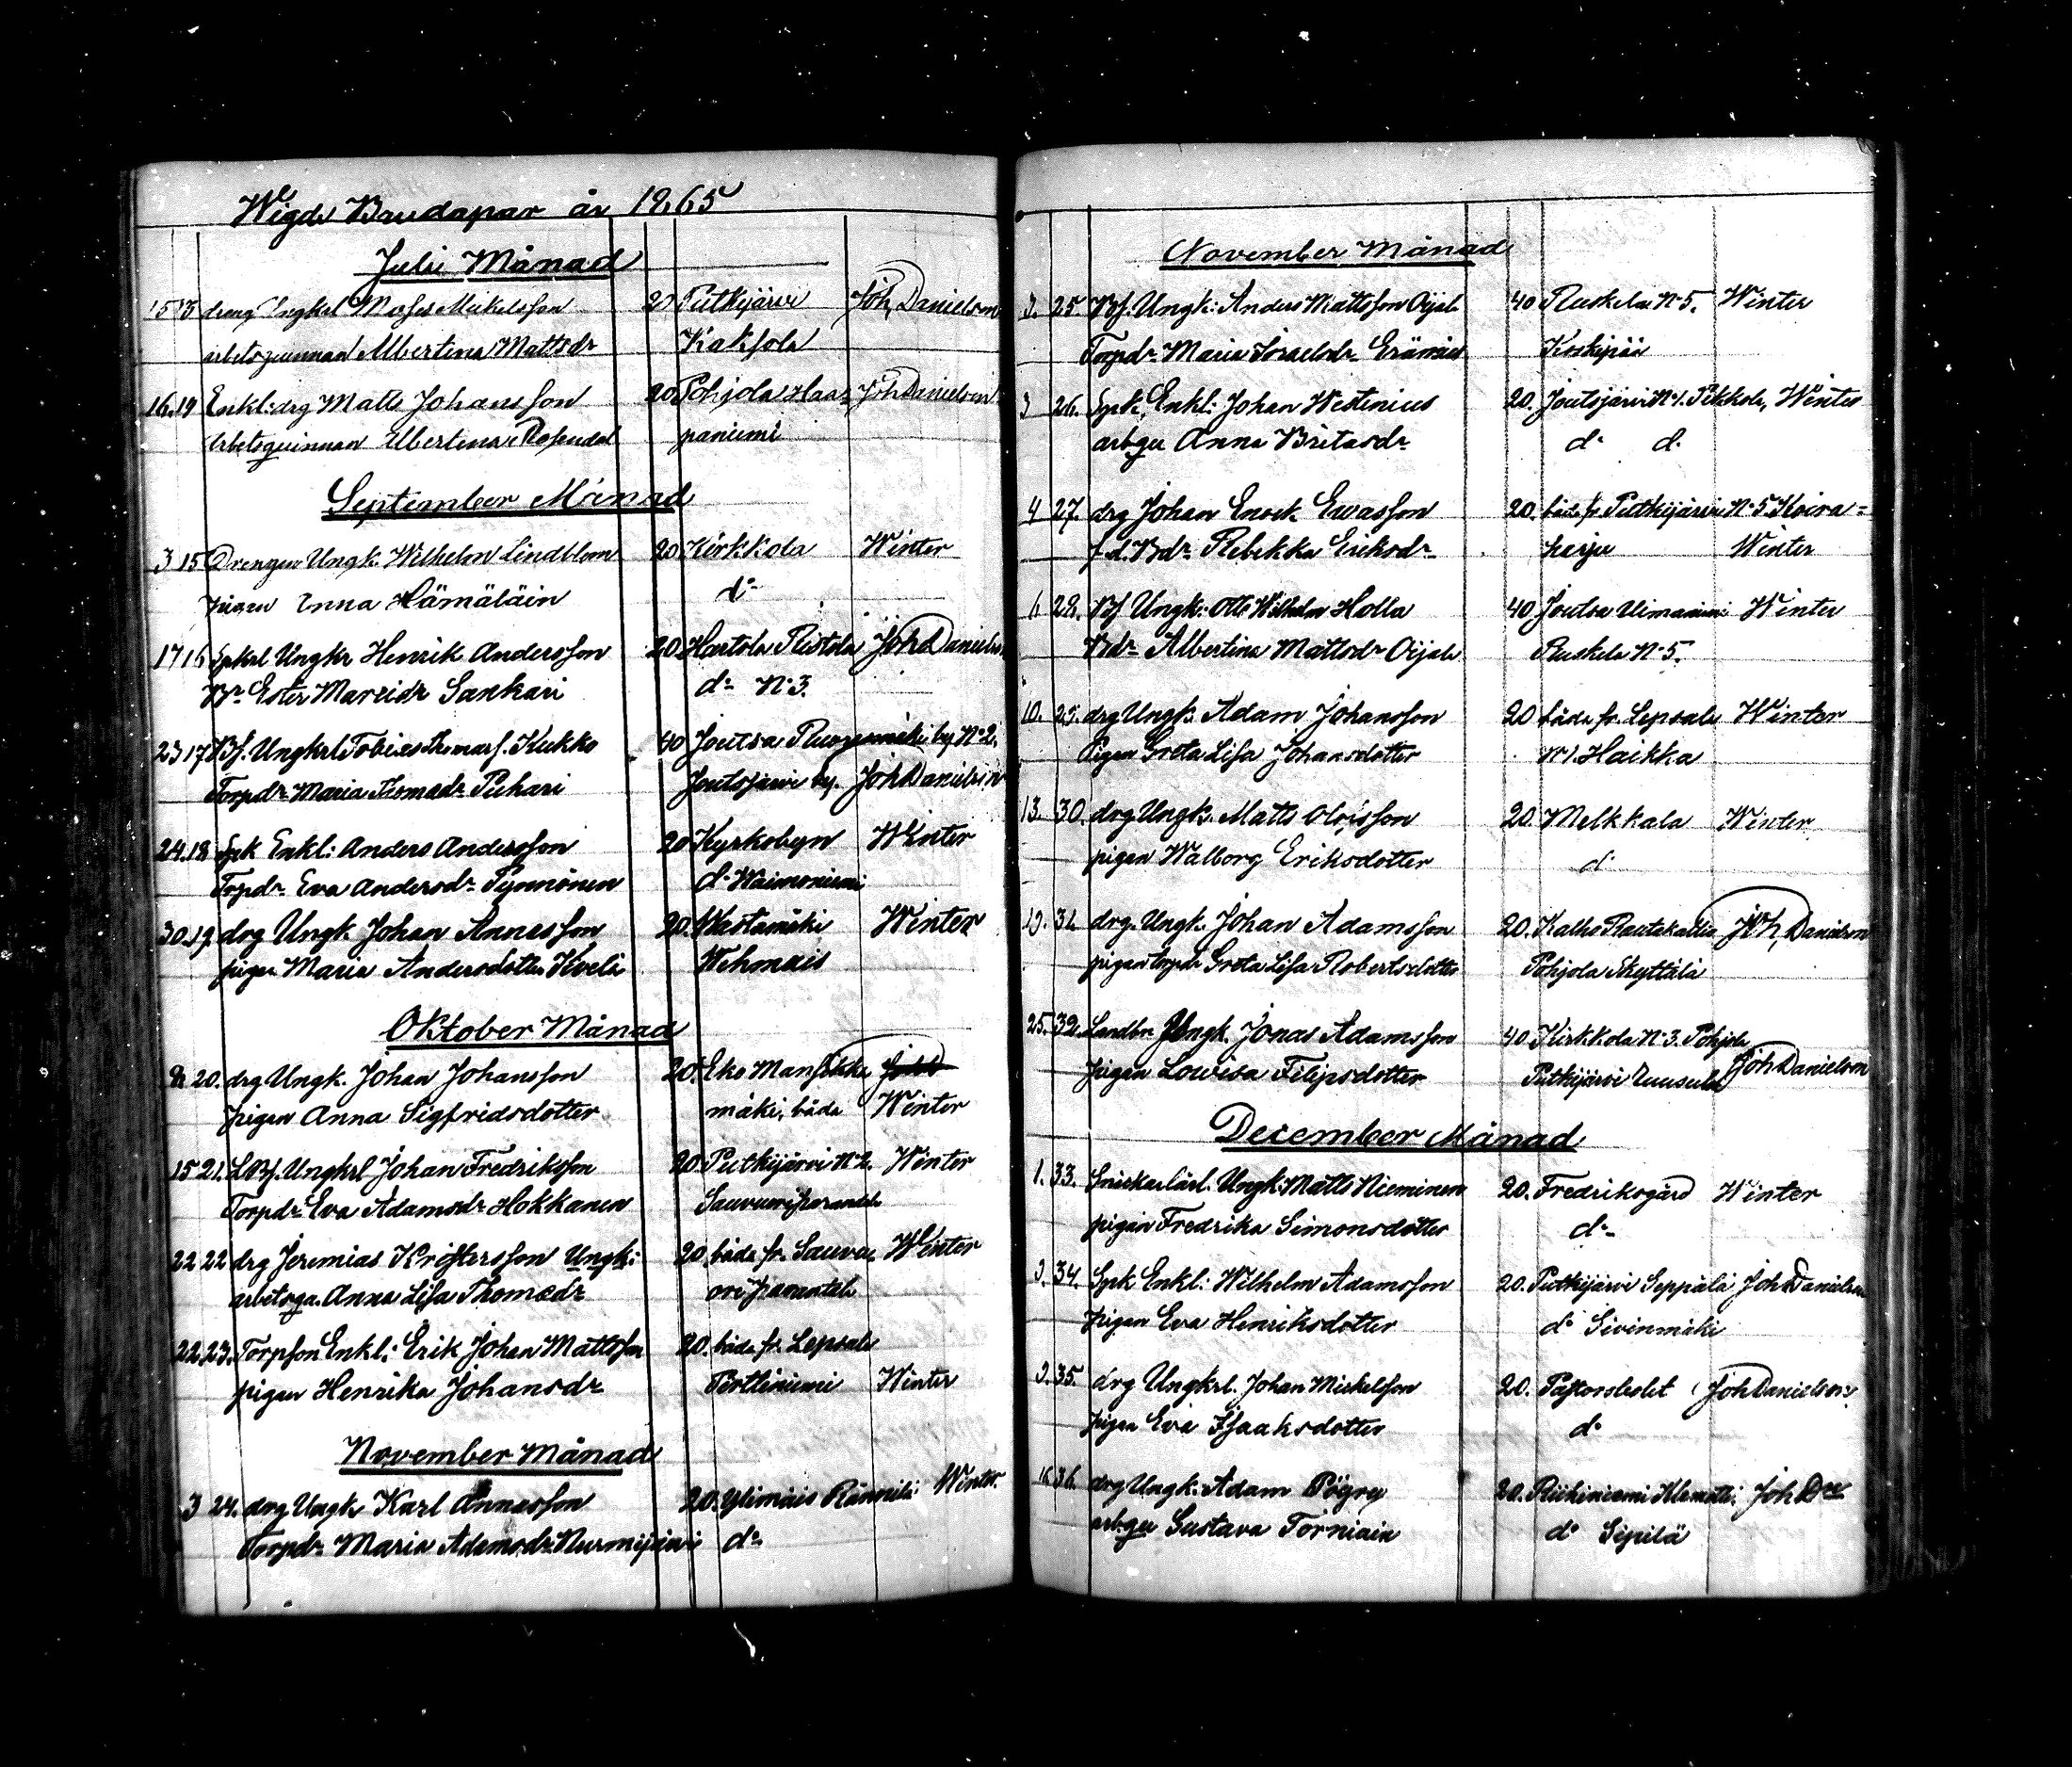 Wigde Brudapar år 1865
Juli Månad
15 13 dreng Ungkrl Moses Mickelsson 20 Putkijärvi Joh, Danielson
arbetsquinnan Albertina Mattsdr Kaksola
16. 19 Enkl: drg Matts Johansson 20 Pohjola Haa- Joh Danielson
Arbetsquinnan Albertina Rosendal paniemi
September Månad
3 15 Drengen Ungk. Wilhelm Lindblom 20 Kirkkola Winter
pigan Anna Hämäläin do
17 16 Spkrl Ungkr Henrik Andersson 20. Hartola Ristola Joh Danielson
Bdr Ester Maridr Sankari do No 3.
23 17 Bs. Ungkrl Tobias Thomass. Kukko 40 Joutsa by No 2.
Torpdr Maria Thomasdr Puhari Joutsjärvi by. Joh Danielson
24. 18 Spk Enkl: Anders Andersson 20 Kyrkobyn Winter
Torpdr Eva Andersdr Pynnönen do Waimoniemi
30. 19. drg Ungk. Johan Annasson 20. Wastamäki Winter
pigan Maria Andersdotter Kveli Wehmais
Oktober Månad
8 20. drg Ungk. Johan Johansson 20. Eko Mansikka
pigan Anna Sigfridsdotter mäki, båda Winter
15 21. LBs. Ungkrl Johan Fredriksson 20. Putkijärvi No 2. Winter
Torpdr Eva Adamsdr Hokkanen
22 22 drg Jeremias Kristersson Ungk: 20. båda fr. Sauvu Winter
arbetsqa. Anna Lisa Thomasdr ori
22. 23. Torpson Enkl: Erik Johan Mattsson 20. båda fr. Lepsala
pigan Henrika Johansdr Perttiniemi Winter
November Månad
3 24. drg Ungk Karl Annasson 20. Ylimäis Winter.
Torpdr Maria Adamsdr Nurmijärvi do
November Månad
3. 25 Bs. Ungk: Anders Mattsson Oijala 40 Ruskela No 5. Winter
Torpdr Maria Israelsdr Erämies Koskipää
3 26. Spk, Enkl: Johan Westenius 20. Joutsjärvi No 1. Pekkola, Winter
arbqu Anna Britasdr do do
4 27. drg Johan Enock Ewasson 20. båda fr Putkijärvi No 5. Koira-
f.d. Bdr Rebekka Eriksdr harju Winter
6 28. Bs Ungk: Otto Wilhelm Holla 40 Joutsa Uimaniemi Winter
Bdr Albertina Mattsdr Oijala Ruskela No 5.
10. 29. drg Ungk. Adam Johansson 20 båda fr. Lepsala Winter
Pigan Greta Lisa Johansdotter No 1. Haikka
13. 30. drg Ungk. Matts Oloisson 20. Melkkala Winter
pigan Walborg Eriksdotter do
19. 31. drg. Ungk. Johan Adamsson 20. Kalho Rautakallia Joh, Danielson
pigan torpdr Greta Lisa Robertsdotter Pohjola Skyttälä
25. 32. Landbr Ungk. Jonas Adamsson 40. Kirkkola No 3. Pohjola
Pigan Lowisa Filipsdotter Putkijärvi Joh Danielson
December Månad
1. 33. Snickarlärl. Ungk: Matts Nieminen 20. Fredriksgård Winter
pigan Fredrika Simonsdotter do
3. 34. Spk Enkl: Wilhelm Adamsson 20. Putkijärvi Seppälä Joh Danielson
pigan Eva Henriksdotter do Sivinmäki
3. 35. drg Ungkrl. Johan Mickelsson 20. Pastorsbolet Joh Danielson
pigan Eva Isaaksdotter do
16. 36. drg Ungk. Adam Pögry 20. Riihiniemi Joh Dn
arbqu Gustava Torniain do Sipilä